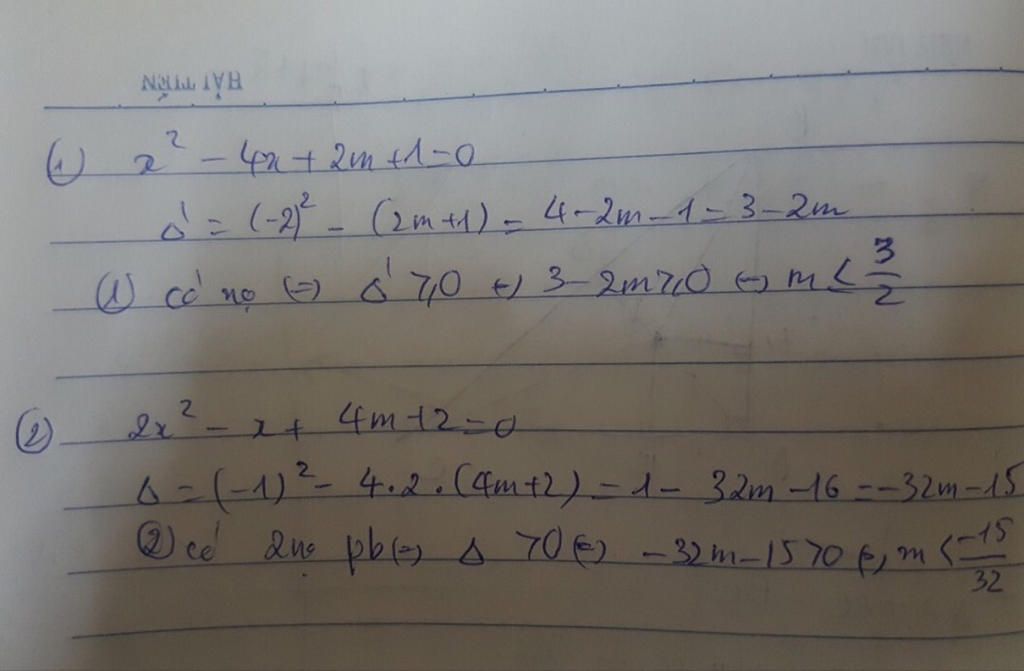 HẢI TIẾN
(1) x² - 4x + 2m + 1 = 0
Δ' = (-2)² - (2m+1) = 4 - 2m - 1 = 3 - 2m
(1) có no ⇔ Δ' ≥ 0 ⇔ 3 - 2m ≥ 0 ⇔ m ≤ 3/2
(2) 2x² - x + 4m + 2 = 0
Δ = (-1)² - 4.2.(4m+2) = 1 - 32m - 16 = -32m - 15
(2) có 2no pb ⇔ Δ > 0 ⇔ -32m - 15 > 0 ⇔ m < -15/32